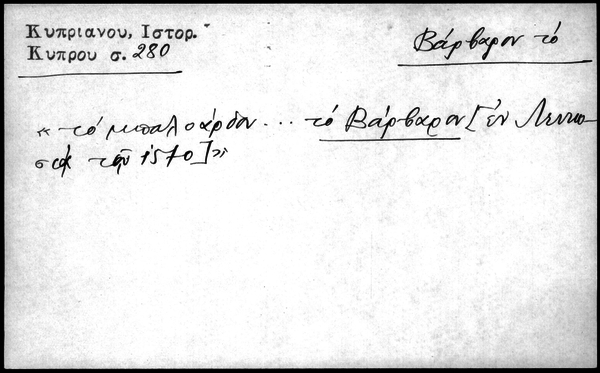 Κυπριανου, Ιστορ.
Κυπρου σ. 280
Βάρβαρον τό
«τό μπαλοάρδον... τό Βάρβαρον [ἐν Λευκω-
σίᾳ τοῦ 1570]»